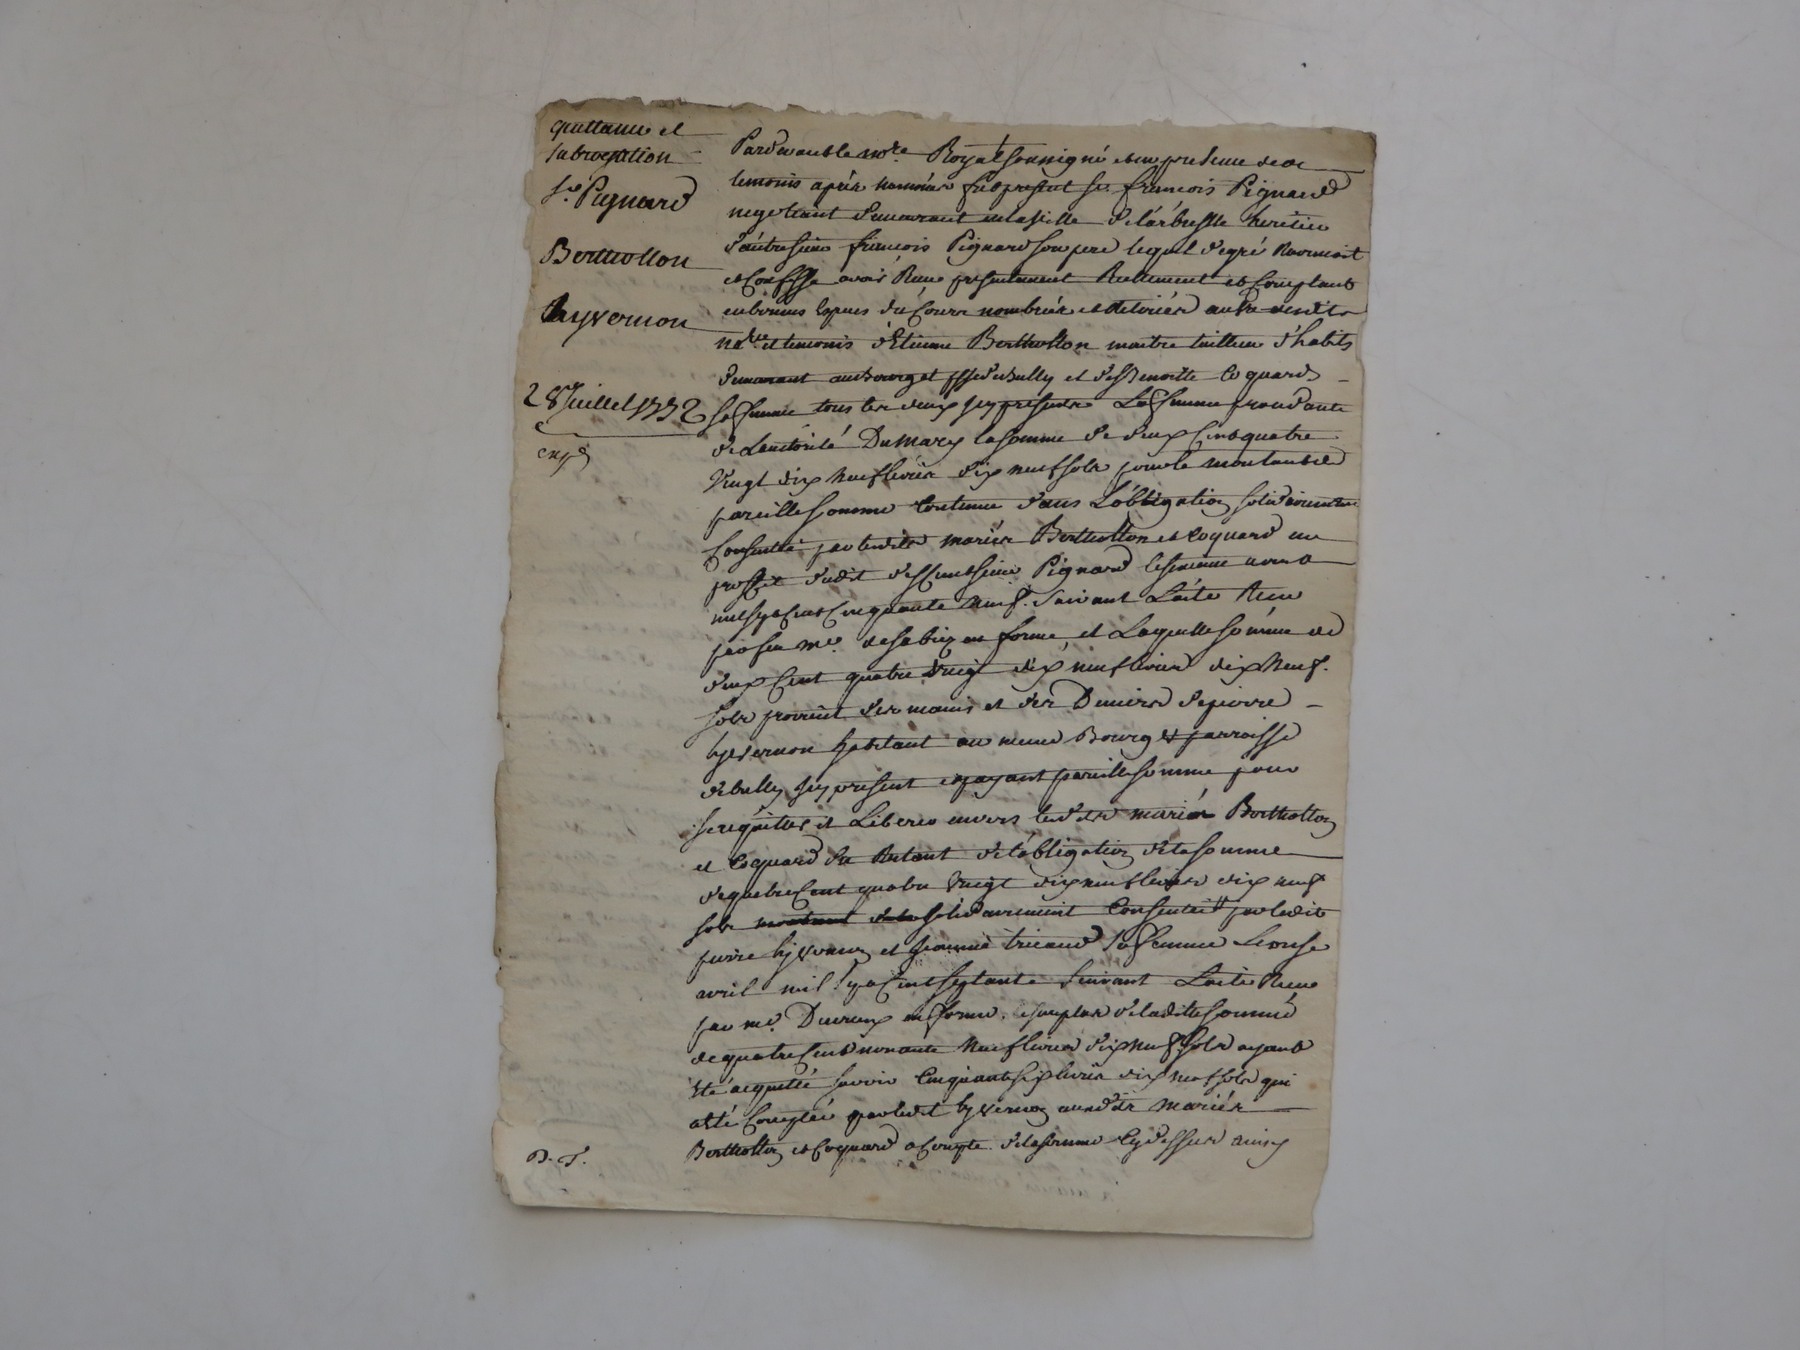 quittance et
subrogation
Sr. Pignard
Bertholton
hyvernon
28 Juillet 1772
exp.
Pardevant le no.re Royal soussigné et en presence des
temoins après nommés fut present sr. francois Pignard
negotiant demeurant en la ville de l'arbresle heritier
d'autre sieur francois Pignard son pere lequel de gré Reconnoit
et Confesse avoir Reçu presentement Reellement et Comptant
en bonnes especes du Cours nombrées et Retirées au vu desdits
no.re et temoins d'Etienne Bertholton maitre tailleur d'habits
demeurant au Bourg et psse de Bully et de Benoitte Coquard
sa femme tous les deux icy presents La femme procedante
de Lautorité Du Mary la somme de deux Cent quatre
Vingt dix neuf livres dix neuf sols pour le montant de
pareille somme Contenue dans L'obligation solidairement
Consentie par lesdits mariés Bertholton et Coquard au
proffit dudit deffunt sieur Pignard le
mil sept Cent Cinquante neuf. Suivant L'acte Reçu
par feu me. en forme, et Laquelle somme de
deux Cent quatre Vingt dix neuf livres dix Neuf.
sols provient des mains et des Deniers de pierre
hyvernon habitant au meme Bourg et parroisse
de bully icy present et payant pareille somme pour
s'acquitter et Liberer envers lesdits mariés Bertholton
et Coquard du Restant de l'obligation de la somme
de quatre Cent quatre Vingt dix neuf livres dix neuf
sols solidairement Consentie par ledit
pierre hyvernon et Jeanne tricaud sa femme Le onze
avril mil sept Cent septante Suivant L'acte Reçu
par me. en forme, le surplus de ladite somme
de quatre Cent nonante Neuf livres dix neuf sols ayant
été acquitté savoir Cinquante six livres dix neuf sols qui
a été Comptée par ledit hyvernon auxdits Mariés
Bertholton et Coquard a Compte de la somme cy dessus ainsy
B. T.